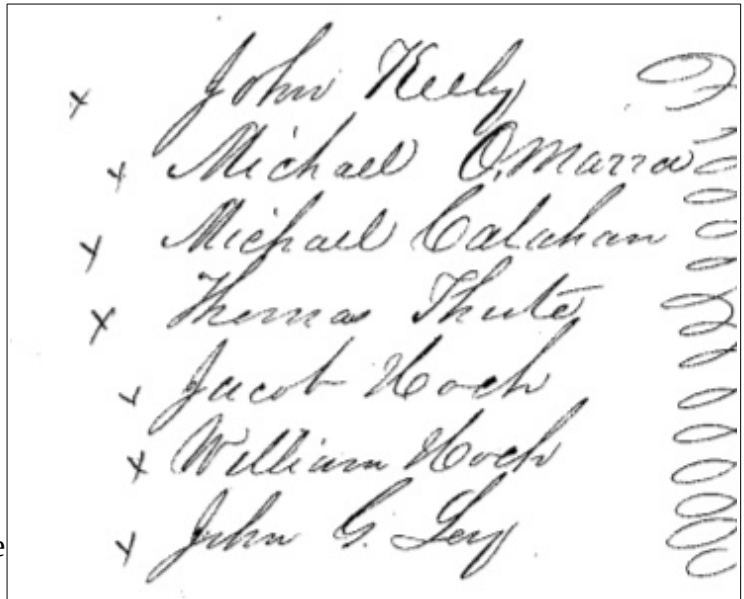 x John Keely
x Michael O.Marra
x Michael Calahan
x Thomas
x Jacob Hoch
x William Hoch
x John G.
e